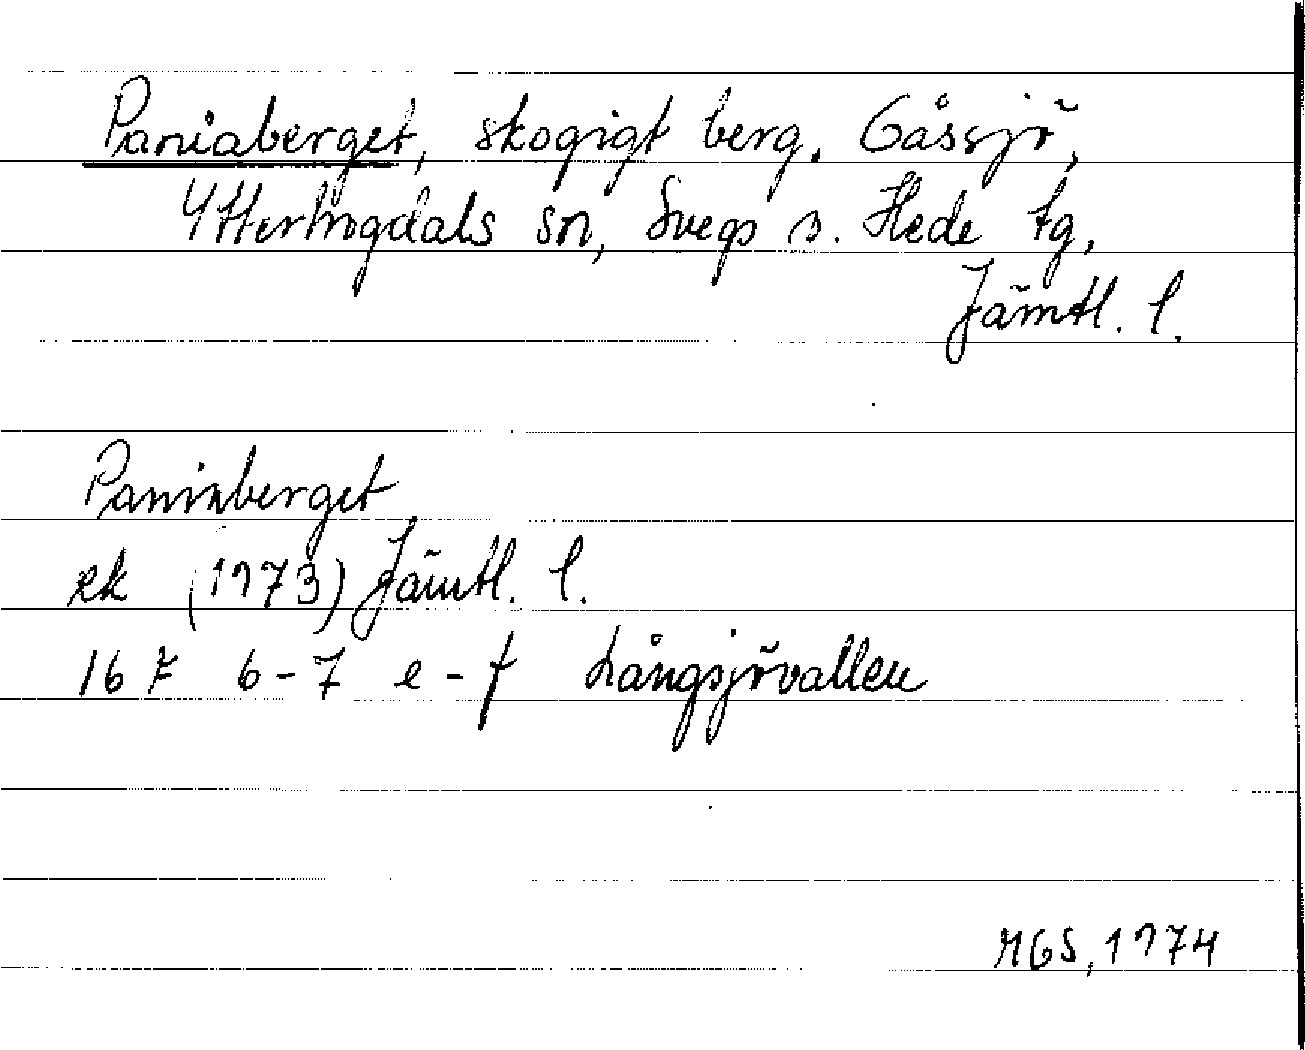 Paniaberget, skogigt berg, Gåssjö,
Ytterhogdals sn, Svegs o. Hede tg,
Jämtl. l.
Paninberget
ek (1973) Jämtl. l.
16 F 6-7 e-f Långsjövallen
MGS, 1974